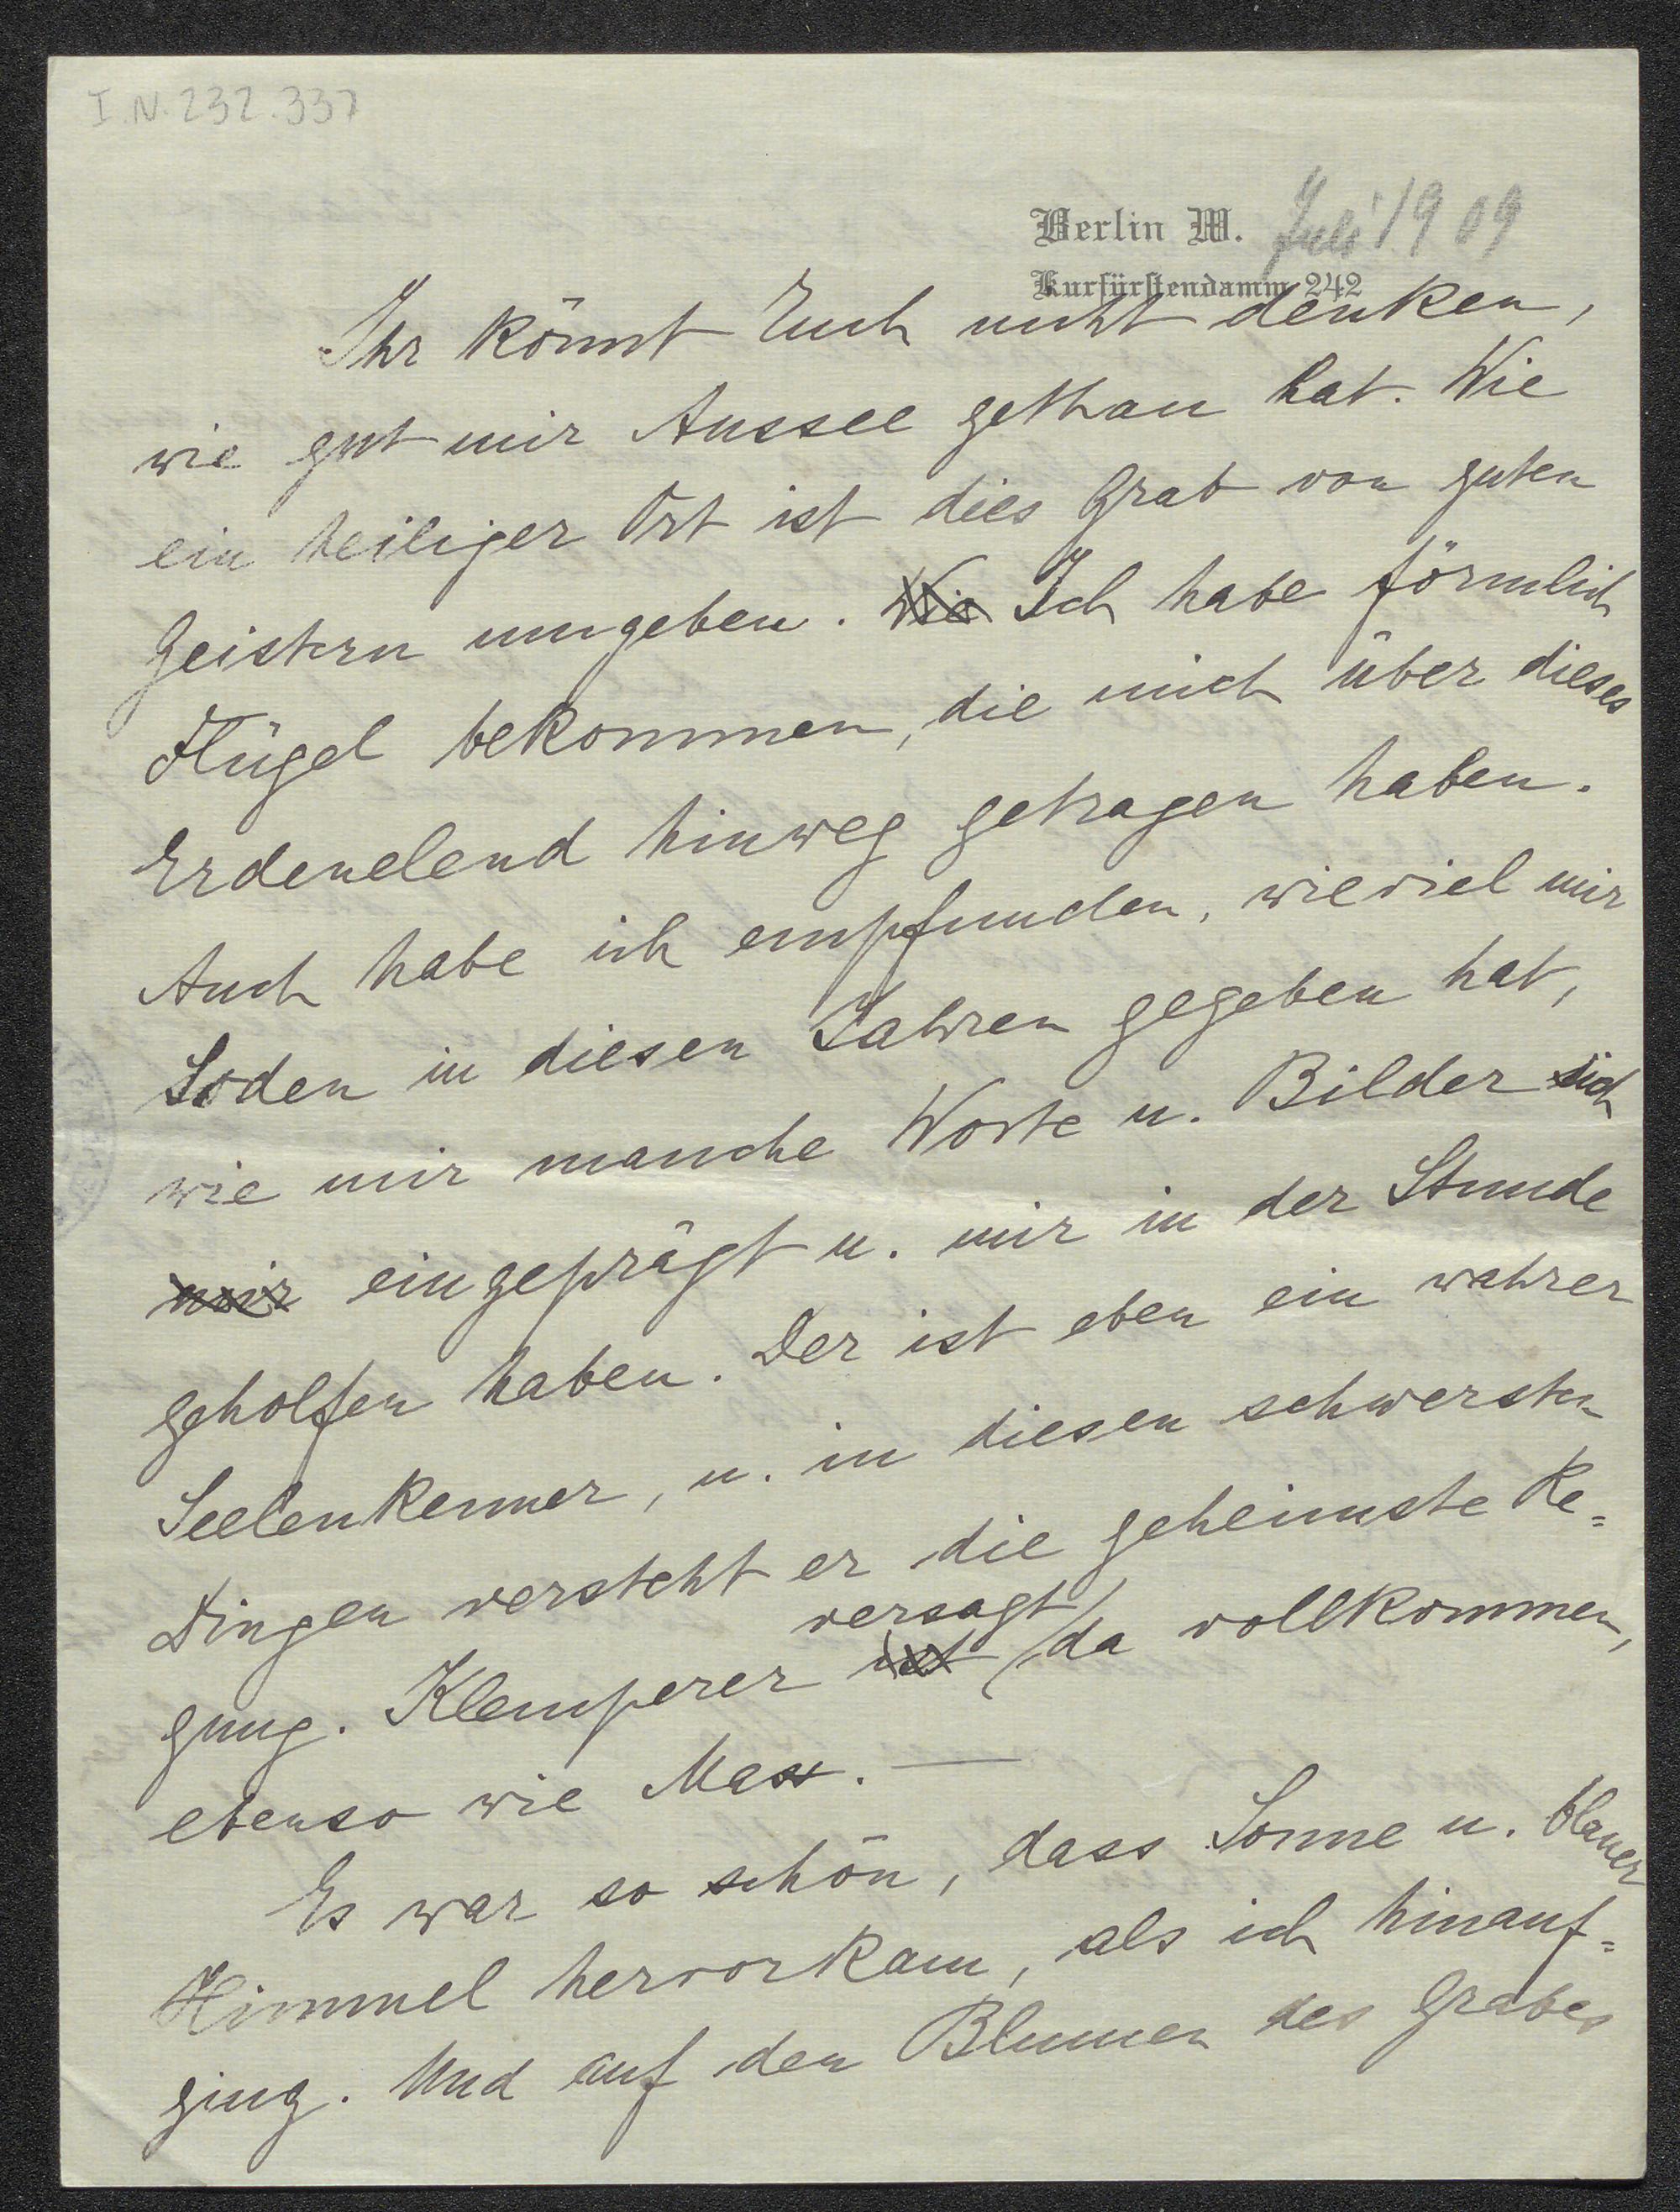 I.N. 232.337
Berlin W. Juli 1909
Kurfürstendamm 242
Ihr könnt Euch nicht denken,
wie gut mir Aussee gethan hat. Wie
ein heiliger Ort ist dies Grab von guten
Geistern umgeben. Wie Ich habe förmlich
Flügel bekommen, die mich über dieses
Erdenelend hinweg getragen haben.
Auch habe ich empfunden, wieviel mir
Soden in diesen Jahren gegeben hat,
wie mir manche Worte u. Bilder sich
mir eingeprägt u. mir in der Stunde
geholfen haben. Der ist eben ein wahrer
Seelenkenner, u. in diesen schwersten
Dingen versteht er die geheimste Re=
versagt
gung. Klemperer ist da vollkommen,
ebenso wie Max. —
Es war so schön, dass Sonne u. blauer
Himmel hervorkam, als ich hinauf=
ging. Und auf den Blumen des Grabes